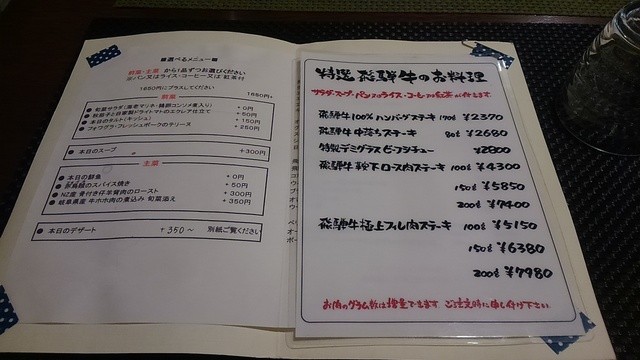 ■選べるメニュー■
前菜・主菜 から1品ずつお選びください
※パン又はライス・コーヒー又は紅茶付
1650円にプラスしてください
1650円～
前菜
● 旬菜サラダ(魚介マリネ・鶏節コンソメ煮入り) +0円
● 秋茄子と自家製ドライトマトのエクレア仕立て +50円
● 本日のタルト(キッシュ) +150円
● フォアグラ・フレッシュポークのテリーヌ +250円
● 本日のスープ +300円
主菜
● 本日の鮮魚 +0円
● 若鶏のスパイス焼き +50円
● NZ産 骨付き仔羊背肉のロースト +300円
● 岐阜県産 牛ホホ肉の煮込み 旬菜添え +350円
● 本日のデザート +350～ 別紙ご覧ください
特選 飛騨牛のお料理
サラダ・スープ・パン又はライス・コーヒー又は紅茶が付きます
飛騨牛100%ハンバーグステーキ 170g ¥2370
飛騨牛 中落ちステーキ 80g ¥2680
特製デミグラス ビーフシチュー ¥2800
飛騨牛 鞍下ロース肉ステーキ 100g ¥4300
150g ¥5850
200g ¥7400
飛騨牛極上フィレ肉ステーキ 100g ¥5150
150g ¥6380
200g ¥7980
お肉のグラム数は増量できます ご注文時に申し付け下さい